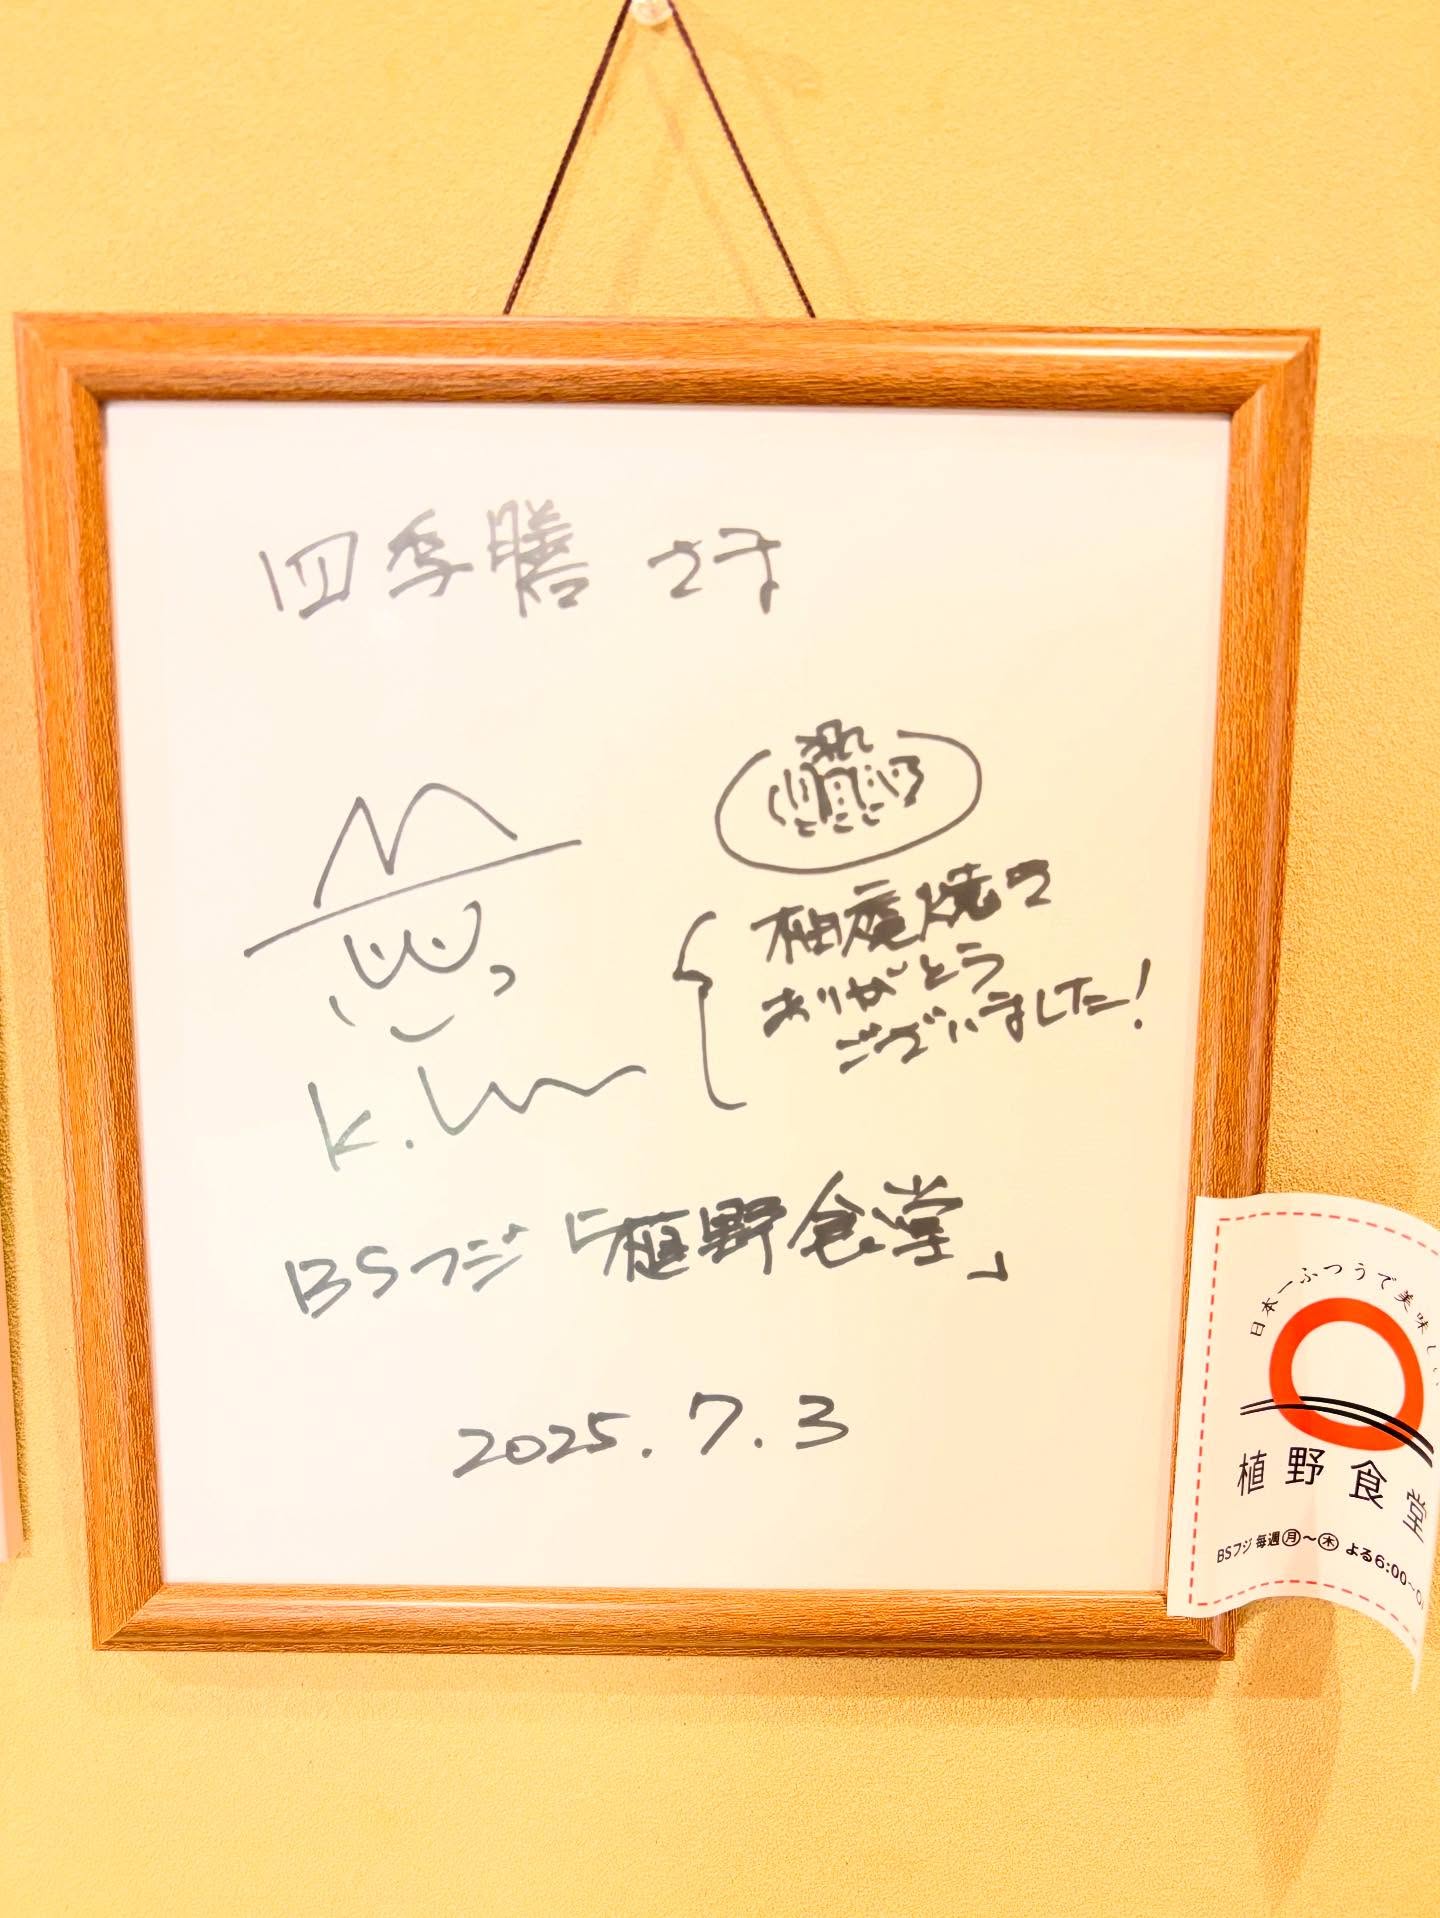 四季膳 さま
柚庵焼き
ありがとう
ございました!
BSフジ「植野食堂」
2025.7.3
日本一ふつうで美味しい
植野食堂
BSフジ 毎週㊊〜㊍ よる6:00〜